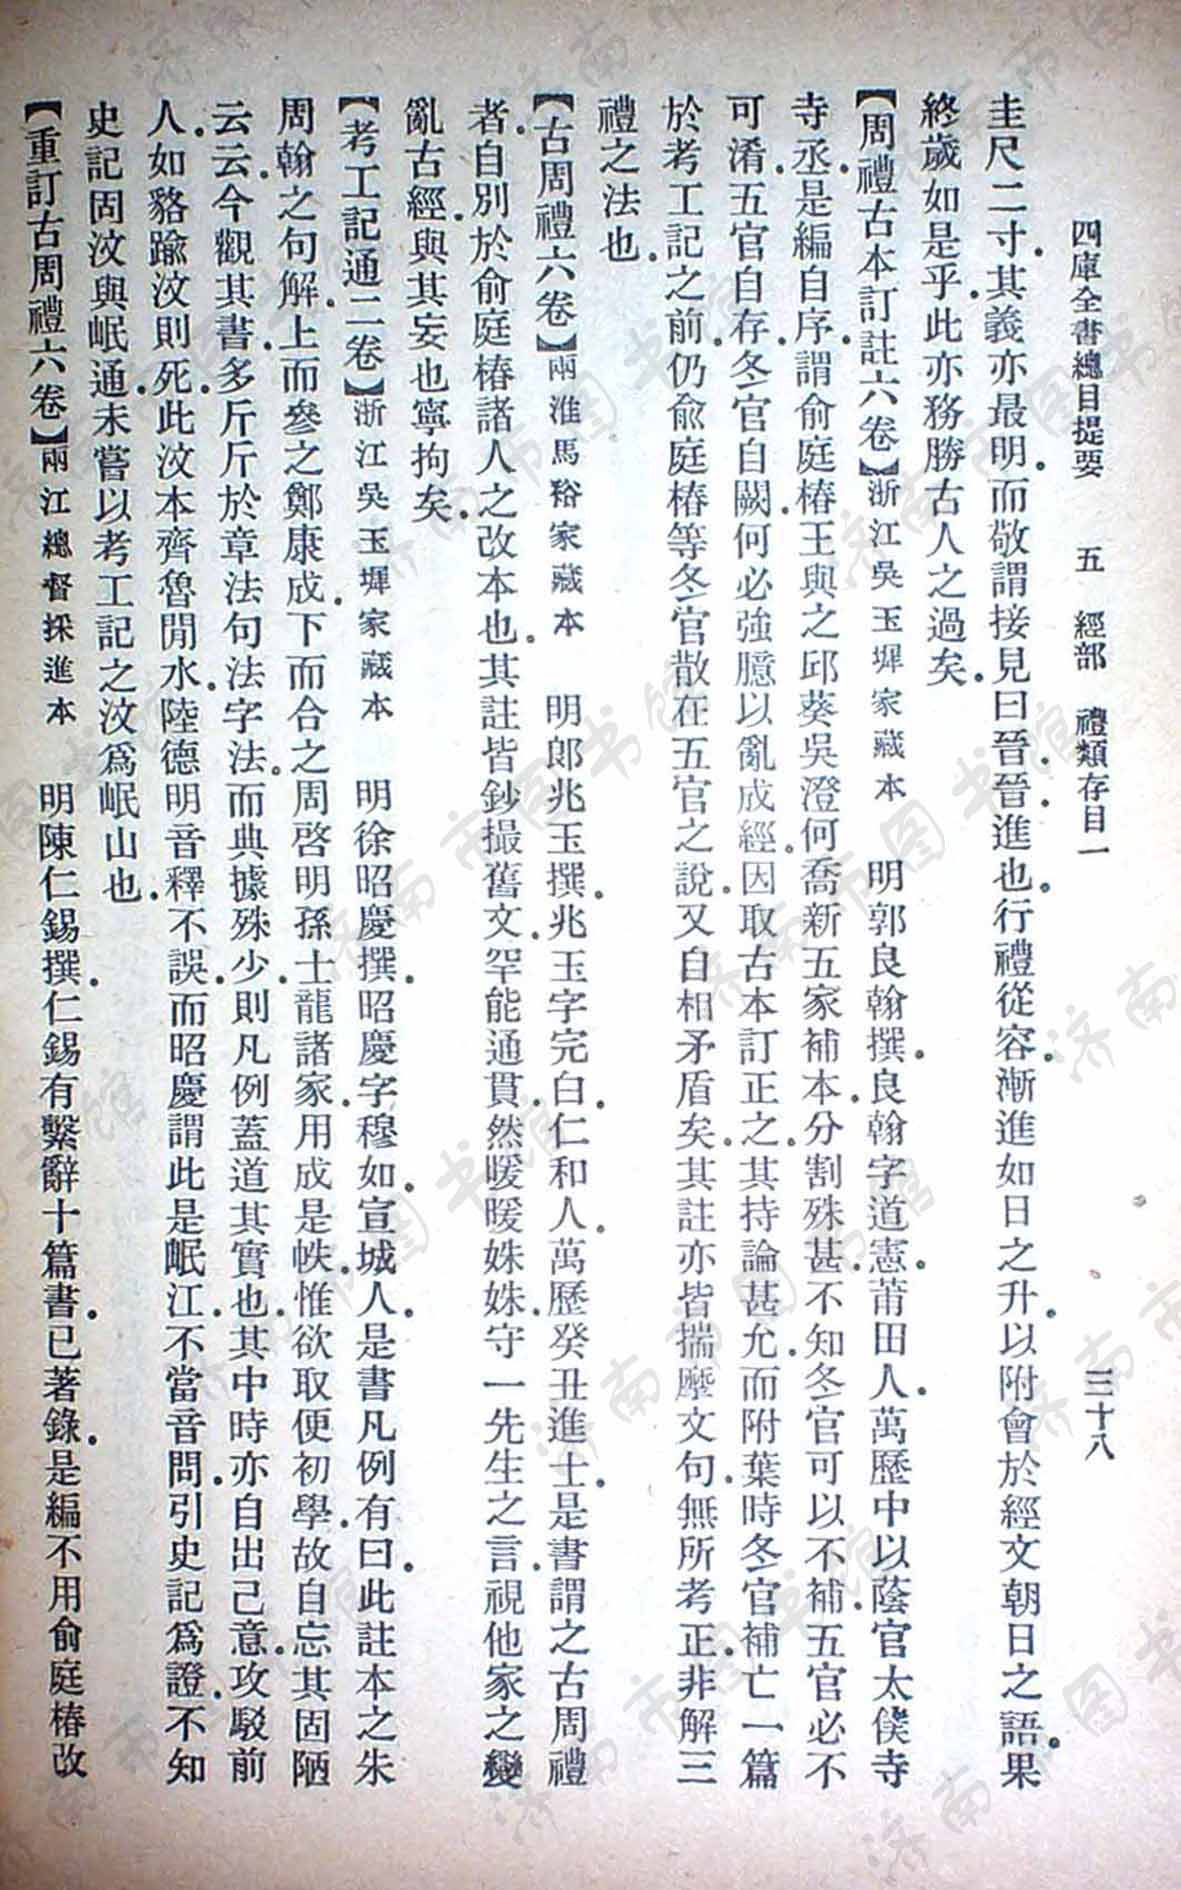 四庫全書總目提要　五　經部　禮類存目一　三十八
圭尺二寸.其義亦最明.而敬謂接見曰晉.晉進也.行禮從容.漸進如日之升.以附會於經文朝日之語.果
終歲如是乎.此亦務勝古人之過矣.
【周禮古本訂註六卷】浙江吳玉墀家藏本　明郭良翰撰.良翰字道憲.莆田人.萬歷中以蔭官太僕寺
寺丞.是編自序.謂俞庭椿王與之邱葵吳澄何喬新五家補本.分割殊甚.不知冬官可以不補.五官必不
可淆.五官自存.冬官自闕.何必強臆以亂成經.因取古本訂正之.其持論甚允.而附葉時冬官補亡一篇
於考工記之前.仍俞庭椿等冬官散在五官之說.又自相矛盾矣.其註亦皆揣摩文句.無所考正.非解三
禮之法也.
【古周禮六卷】兩淮馬裕家藏本　明郎兆玉撰.兆玉字完白.仁和人.萬歷癸丑進士.是書謂之古周禮
者.自別於俞庭椿諸人之改本也.其註皆鈔撮舊文.罕能通貫.然暖暖姝姝.守一先生之言.視他家之變
亂古經.與其妄也寧拘矣.
【考工記通二卷】浙江吳玉墀家藏本　明徐昭慶撰.昭慶字穆如.宣城人.是書凡例有曰.此註本之朱
周翰之句解.上而參之鄭康成.下而合之周啓明孫士龍諸家.用成是帙.惟欲取便初學.故自忘其固陋
云云.今觀其書.多斤斤於章法句法字法.而典據殊少.則凡例蓋道其實也.其中時亦自出己意.攻駁前
人.如貉踰汶則死.此汶本齊魯間水.陸德明音釋不誤.而昭慶謂此是岷江.不當音問.引史記爲證.不知
史記固汶與岷通.未嘗以考工記之汶爲岷山也.
【重訂古周禮六卷】兩江總督採進本　明陳仁錫撰.仁錫有繫辭十篇書.已著錄.是編不用俞庭椿改